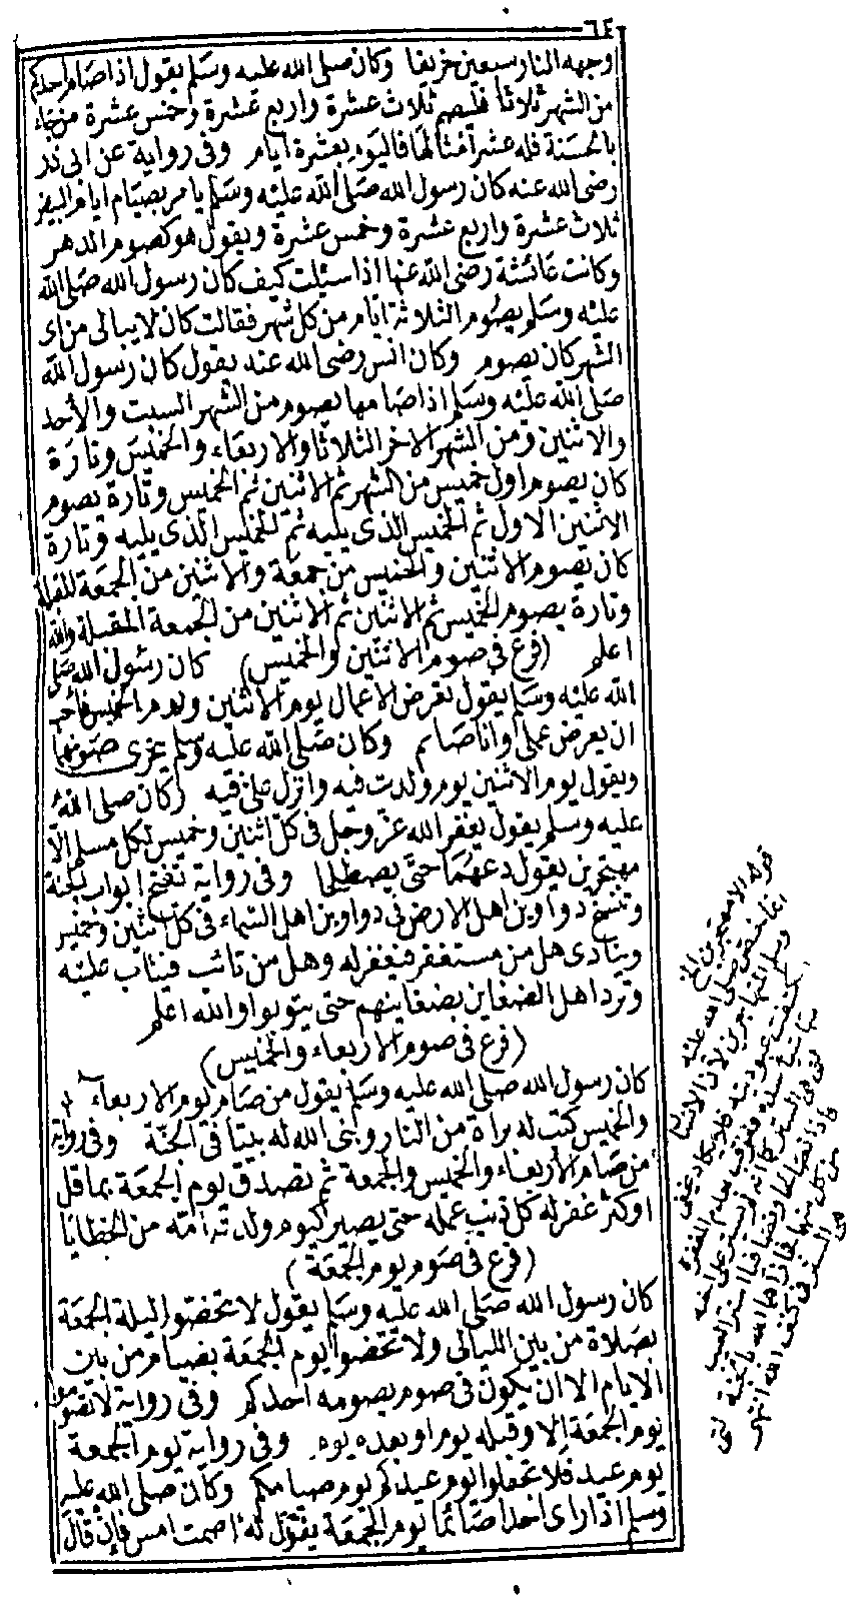 ٦٤
وجهه النار سبعين خريفا وكان صلى الله عليه وسلم يقول اذا صام احدكم
من الشهر ثلاثا فليصم ثلاث عشرة واربع عشرة وخمس عشرة من جاء
بالحسنة فله عشر امثالها فاليوم بعشرة ايام وفى رواية عن ابى ذر
رضى الله عنه كان رسول الله صلى الله عليه وسلم يامر بصيام ايام البيض
ثلاث عشرة واربع عشرة وخمس عشرة ويقول هو كصوم الدهر
وكانت عائشة رضى الله عنها اذا سئلت كيف كان رسول الله صلى الله
عليه وسلم يصوم الثلاثة ايام من كل شهر فقالت كان لا يبالى من اى
الشهر كان يصوم وكان انس رضى الله عنه يقول كان رسول الله
صلى الله عليه وسلم اذا صامها يصوم من الشهر السبت والأحد
والاثنين ومن الشهر الاخر الثلاثا والاربعاء والخميس وتارة
كان يصوم اول خميس من الشهر ثم الاثنين ثم الخميس وتارة يصوم
الاثنين الاول ثم الخميس الذى يليه ثم الخميس الذى يليه وتارة
كان يصوم الاثنين والخميس من جمعة والاثنين من الجمعة المقبلة
وتارة يصوم الخميس ثم الاثنين ثم الاثنين من الجمعة المقبلة والله
اعلم (فرع فى صوم الاثنين والخميس) كان رسول الله صلى
الله عليه وسلم يقول تعرض الاعمال يوم الاثنين ويوم الخميس فأحب
ان يعرض عملى وانا صائم وكان صلى الله عليه وسلم يتحرى صومهما
ويقول يوم الاثنين يوم ولدت فيه وانزل علىّ فيه وكان صلى الله
عليه وسلم يقول يغفر الله عز وجل فى كل اثنين وخميس لكل مسلم الّا
مهتجرين يقول دعهما حتى يصطلحا وفى رواية تفتح ابواب الجنة
وتنسخ دواوين اهل الارض فى دواوين اهل السماء فى كل اثنين وخميس
وينادى هل من مستغفر فيغفر له وهل من تائب فيتاب عليه
وترد اهل الضغاين بضغاينهم حتى يتوبوا والله اعلم
(فرع فى صوم الاربعاء والخميس)
كان رسول الله صلى الله عليه وسلم يقول من صام يوم الاربعاء
والخميس كتب له براة من النار وبنى الله له بيتا فى الجنة وفى رواية
من صام الأربعاء والخميس والجمعة ثم تصدق يوم الجمعة بما قل
او كثر غفر له كل ذنب عمله حتى يصير كيوم ولدته امه من الخطايا
(فرع فى صوم يوم الجمعة)
كان رسول الله صلى الله عليه وسلم يقول لا تخصّوا ليلة الجمعة
بصلاة من بين الليالى ولا تخصوا يوم الجمعة بصيام من بين
الايام الا ان يكون فى صوم يصومه احدكم وفى رواية لا تصوموا
يوم الجمعة الا وقبله يوم او بعده يوم وفى رواية يوم الجمعة
يوم عيد فلا تجعلوا يوم عيدكم يوم صيامكم وكان صلى الله عليه
وسلم اذا راى احدا صائما يوم الجمعة يقول له اصمت امس فإن قال
قوله الا مهتجرين الخ
انما خص صلى الله عليه
وسلم المتهاجرين لأن الانسان